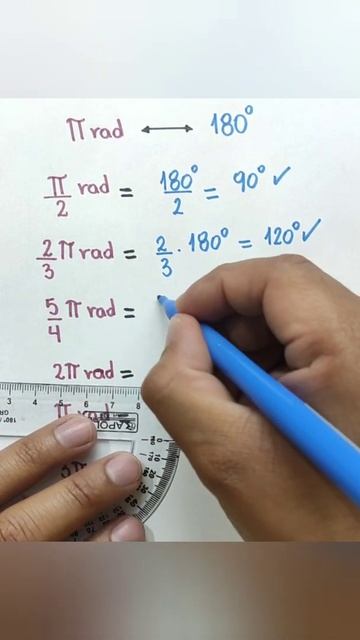 π rad ↔ 180°
π/2 rad = 180°/2 = 90° ✓
2/3 π rad = 2/3 · 180° = 120° ✓
5/4 π rad =
2π rad =
3 4 5 6 7 8
π rad =